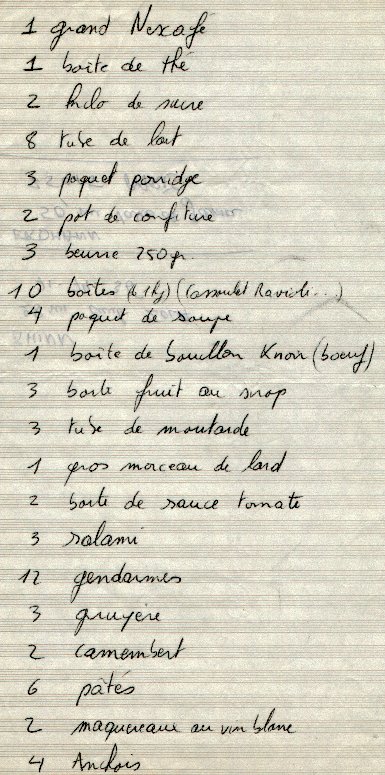 1 grand Nescafé
1 boîte de thé
2 kilo de sucre
8 tube de lait
3 paquet porridge
2 pot de confiture
3 beurre 250 gr.
10 boîtes (Cassoulet Ravioli...)
4 paquet de soupe
1 boîte de bouillon Knorr (boeuf)
3 boite fruit au sirop
3 tube de moutarde
1 gros morceau de lard
2 boite de sauce tomate
3 salami
12 gendarmes
3 gruyère
2 camembert
6 pâtés
2 maquereaux au vin blanc
4 Anchois